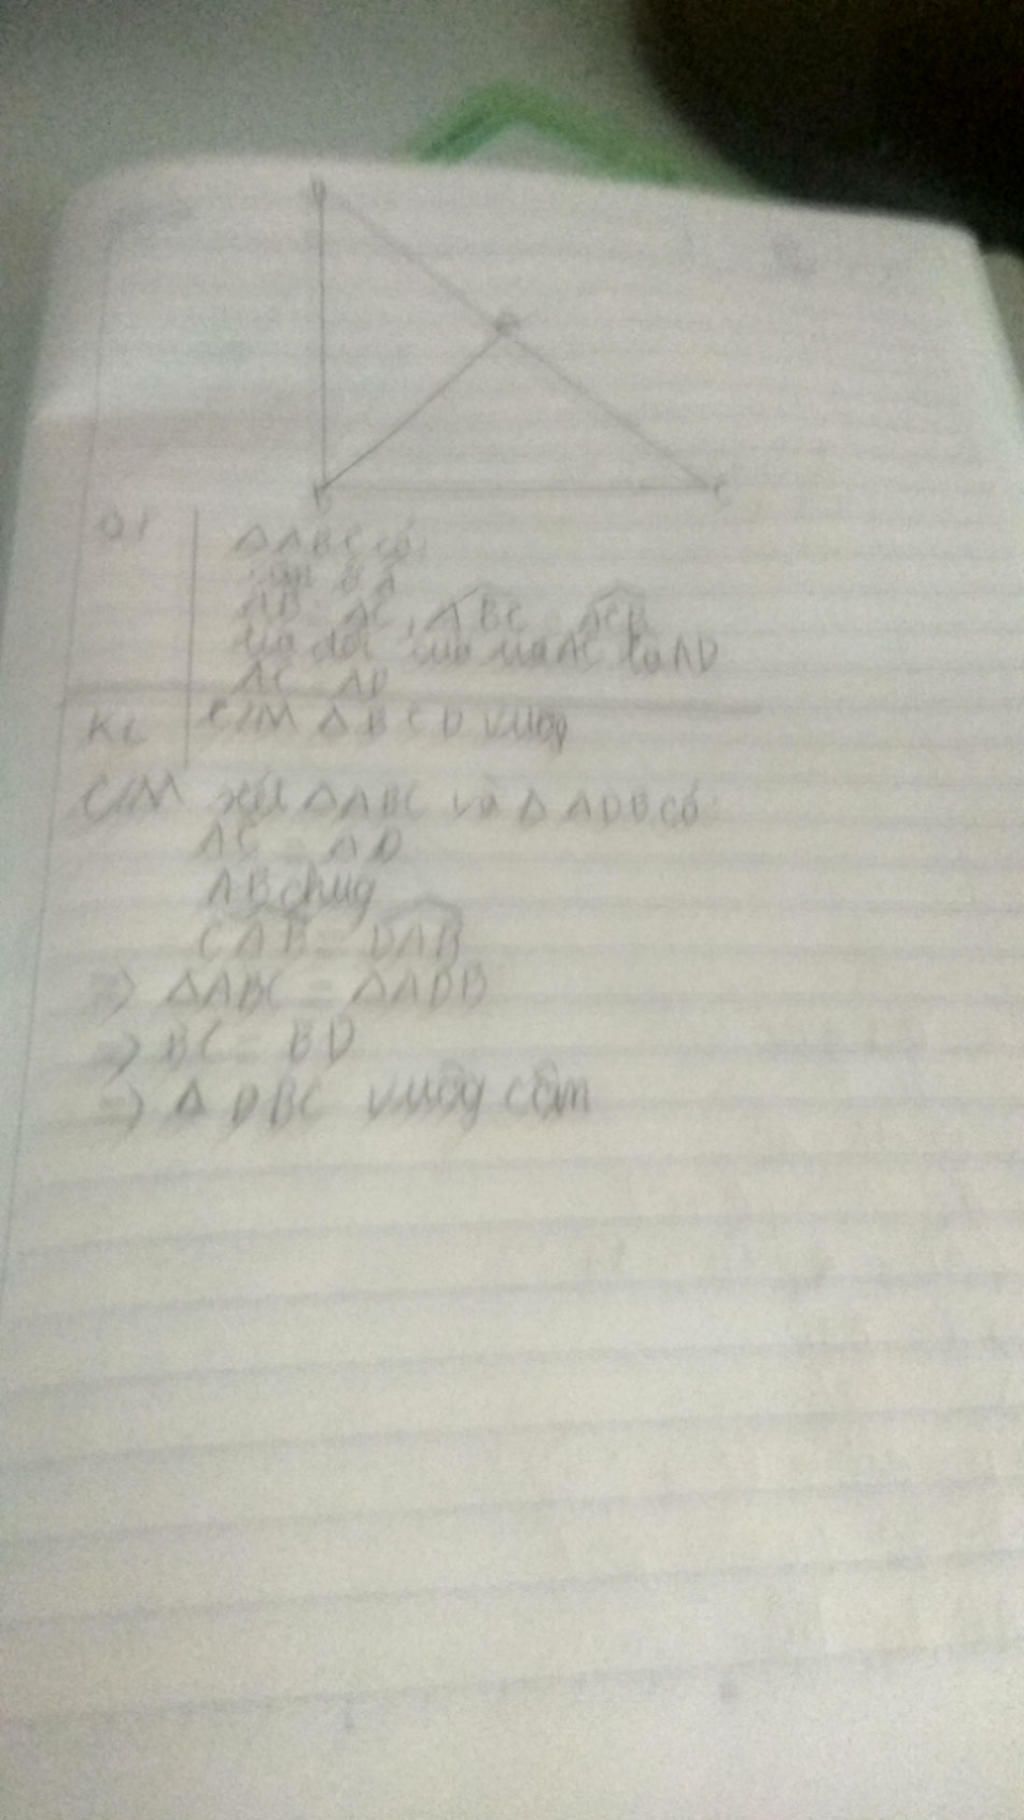 D
A
B
C
GT
ΔABC có:
cân ở A
AB = AC, ABC = ACB
tia đối của tia AC là AD
AC = AD
KL
C/M ΔBCD vuôg
C/M xét ΔABC và ΔADB có:
AC = AD
AB chug
CAB = DAB
=> ΔABC = ΔADB
=> BC = BD
=> Δ DBC vuôg câm